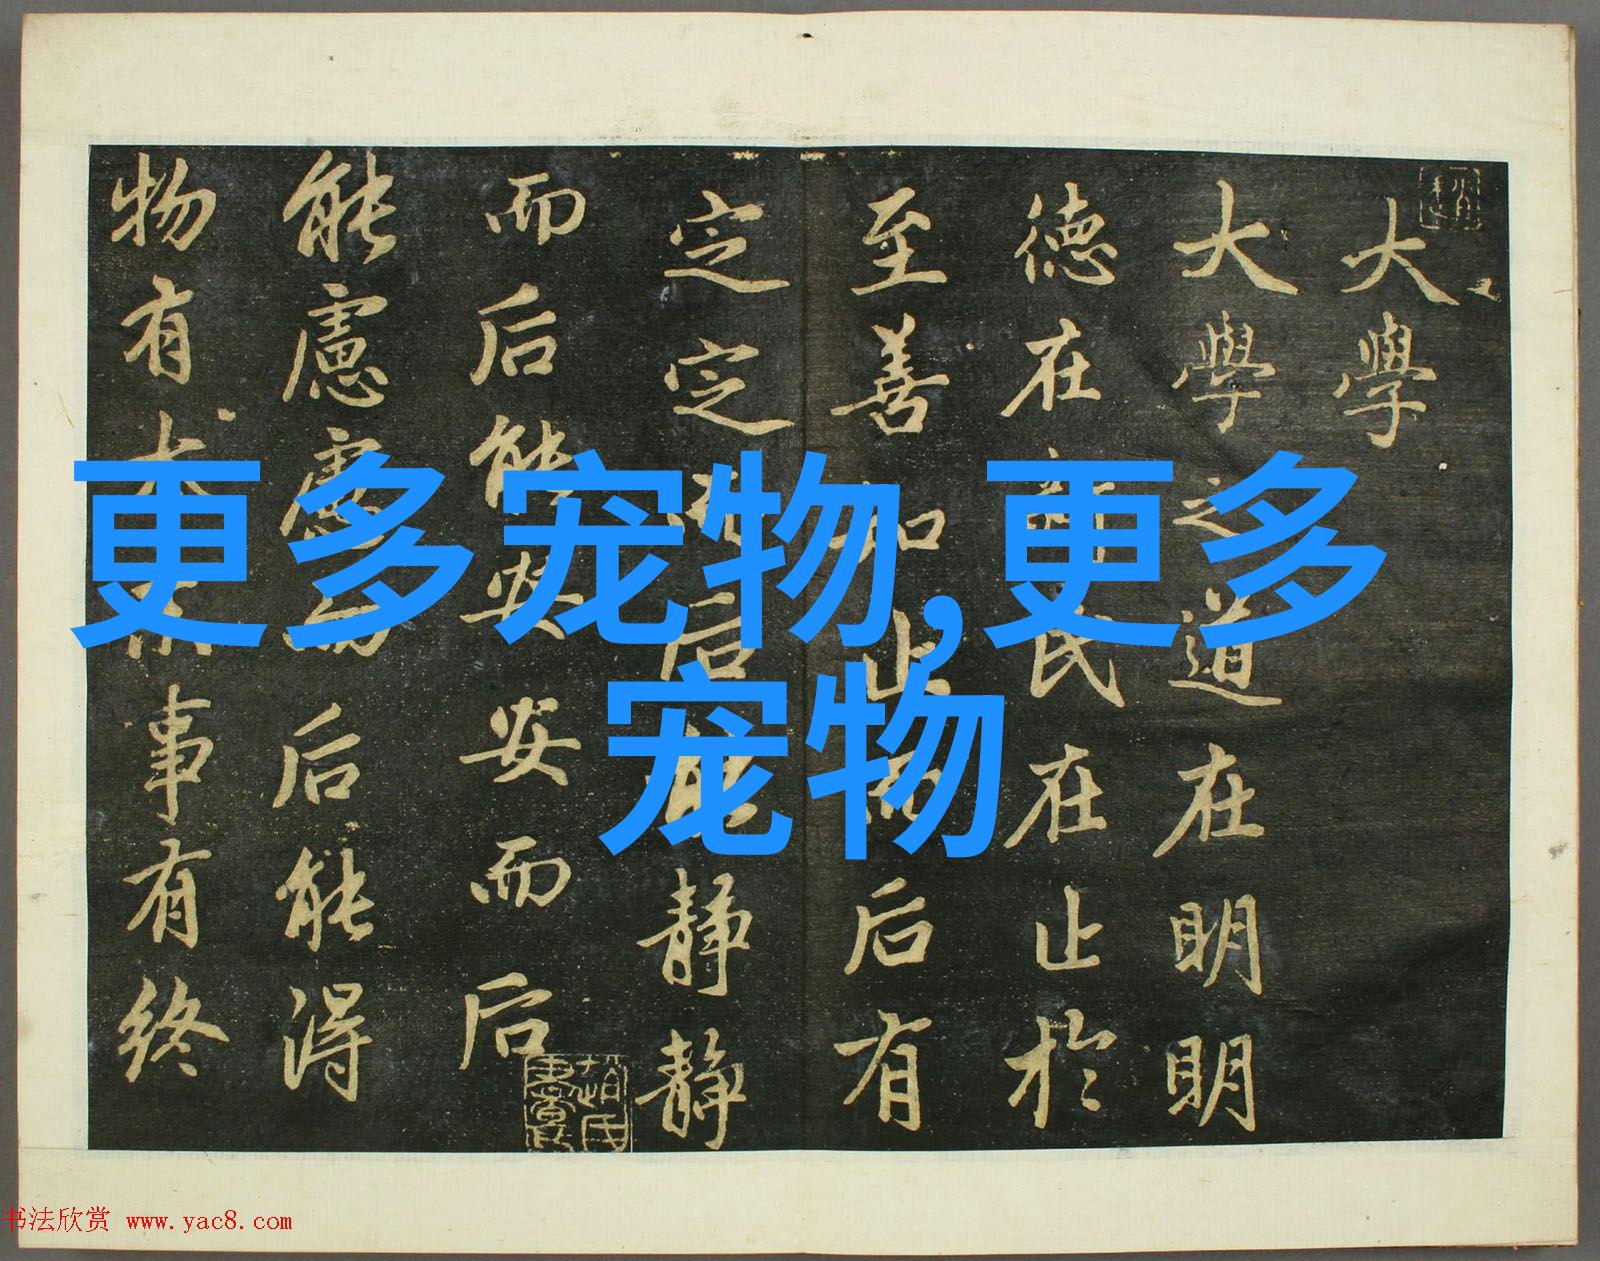 大學
大學之道在明明
德在民在止於
至善知止而后有
定定而后能靜靜
而后能安安而后
能慮慮而后能得
物有本末事有終
更多宠物,更多
宠物
书法欣赏 www.yac8.com